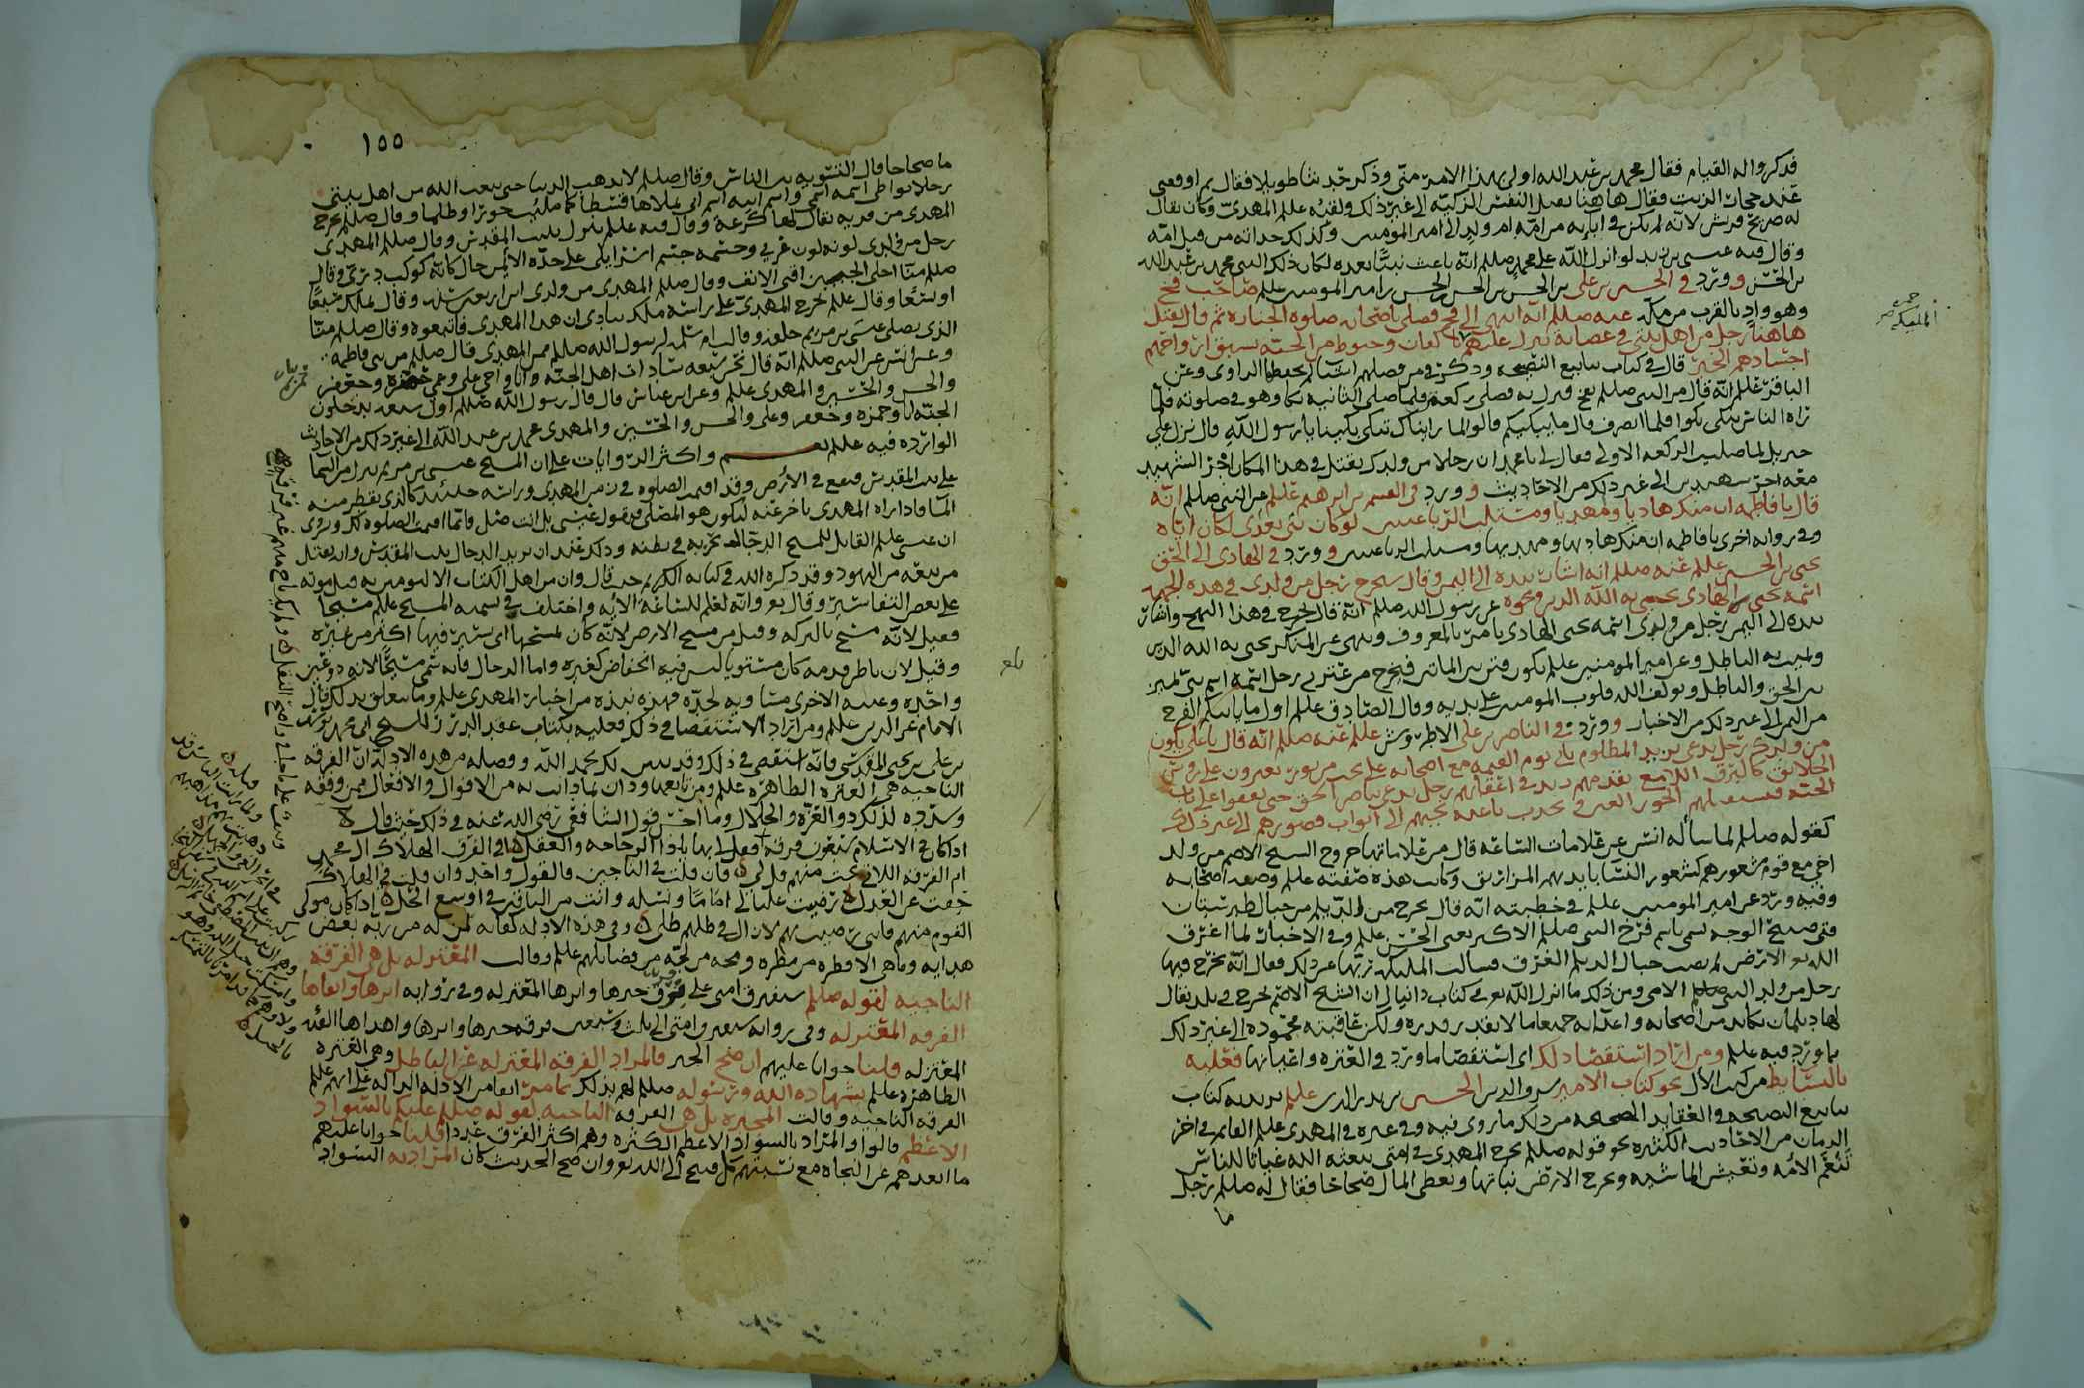 فذكروا له القيام فقال محمد بن عبد الله اولى بهذا الامر متى وذكر حديثا طويلا فقال
عند حجات الزيت فقال هاهنا يقتل النفس الزكيه الى غير ذلك ولقبه علم المهدي وكان يقال
له صريح قريش لانه لم يكن في ابايه من امه ام ولد الى امير المومنين وكذلك جداته من قبل امه
وقال فيه عيسى بن زيد لو انزل الله على محمد صللم انه باعث نبيا بعده لكان ذلك النبي محمد بن عبد الله
بن الحسن وورد في الحسين بن علي بن الحسن بن الحسن بن الحسن بن امير المومنين علم صاحب فخ
وهو واد بالقرب من مكه عنه صللم انه انتهى الى فخ فصلى باصحابه صلوه الجنازه ثم قال يقتل
هاهنا رجل من اهل بيتي في عصابة ينزل عليهم اكفان وحنوط من الجنه يسبق ارواحهم
اجسادهم الخبر قال في كتاب ينابيع النصيحه وذكر من فضلهم اشيا لم يحفظها الراوي وعن
الباقر علم انه قال مر النبي صللم بفخ فنزل به فصلى ركعه فلما صلى الثانيه بكا وهو في صلوته فلما
راه الناس يبكي بكوا فلما انصرف قال ما يبكيكم قالوا لما رايناك تبكي بكينا يا رسول الله قال نزل علي
جبريل لما صليت الركعه الاولى فقال لي يا محمد ان رجلا من ولدك يقتل في هذا المكان اجر الشهيد
معه اجر شهيدين الى غير ذلك من الاحاديث وورد في القسم بن ابرهيم علم عن النبي صللم انه
قال يا فاطمه ان منك هاديا ومهديا ومستلب الرباعيتين لو كان نبي بعدي لكان اياه
وفي روايه اخرى يا فاطمه ان منك هاديها ومهديها ومستلب الرباعيتين وورد في الهادي الى الحق
يحيى بن الحسين علم عنه صللم انه اشار بيده الى اليمن وقال سيخرج رجل من ولدي في هذه الجهه
اسمه يحيى الهادي يحيي به الله الدين وعن رسول الله صللم انه قال يخرج في هذا النهج واشار
بيده الى اليمن رجل من ولدي اسمه يحيى الهادي يامر بالمعروف وينهى عن المنكر يحيي به الله الدين
ويميت به الباطل وعن امير المومنين علم يكون فتن بين الماتين فيخرج من عترتي رجل اسمه اسم نبي يميز
بين الحق والباطل ويولف الله قلوب المومنين على يديه وقال الصادق علم اول ما ياتيكم الفرج
من اليمن الى غير ذلك من الاخبار وورد في الناصر بن علي الاطروش علم عنه صللم انه قال يا علي يكون
من ولدك رجل يدعى بزيد المظلوم ياتي يوم القيمه مع اصحابه على نجب من نور يعبرون على روس
الخلائق كالبرق اللامع يقدمهم زيد وفي اعقابهم رجل يدعى بناصر الحق حتى يقفوا على باب
الجنه فتستقبلهم الحور العين وتجذب باعنه نجبهم الى ابواب قصورهم الى غير ذلك
كقوله صللم لما ساله انس عن علامات الساعه قال من علاماتها خروج الشيخ الاصم من ولد
اخي مع قوم شعورهم كشعور النسا بايديهم المزاريق وكانت هذه صفته علم وصفه اصحابه
وفيه ورد عن امير المومنين علم في خطبته انه قال يخرج من الديلم من جبال طبرستان
فتى صبيح الوجه يسمى باسم فرخ النبي صللم الاكبر يعني الحسن علم وفي الاخبار لما اغرق
الله تعا الارض لم يصب جبال الديلم الغرق فسالت المليكه ربها عن ذلك فقال انه يخرج فيها
رجل من ولد النبي صللم الامي ومن ذلك ما انزل الله تعا في كتاب دانيال ان الشيخ الاصم يخرج في بلد يقال
لها ديلمان يكابد من اصحابه واعدايه جميعا ما لا يقدر قدره ولكن عاقبته محموده الى غير ذلك
مما ورد فيه علم ومن اراد استقصا ذلك اي استقصا ما ورد في العتره واعيانها فعليه
بالبسايط من كتب الال نحو كتاب الامير بدر الدين الحسين بن بدر الدين علم يريد به كتاب
ينابيع النصيحه في العقايد الصحيحه من ذلك ما روي فيه وفي غيره في المهدي علم القايم في اخر
الزمان من الاحاديث الكثيره نحو قوله صللم يخرج المهدي في امتي يبعثه الله غياثا للناس
تنعم الامه وتعيش الماشيه وتخرج الارض نباتها ويعطي المال صحاحا فقال له صللم رجل
ما
١٥٥
ما صحاحا قال التسويه بين الناس وقال صللم لا يذهب الدنيا حتى يبعث الله من اهل بيتي
رجلا يواطي اسمه اسمي واسم ابيه اسم ابي يملاها قسطا كما مليت جورا وظلما وقال صللم يخرج
المهدي من قريه يقال لها كرعة وقال فيه علم ينزل ببيت المقدس وقال صللم المهدي
رجل من ولدي لونه لون عربي وجسمه جسم اسرائيلي على خده الايمن خال كانه كوكب دري وقال
صللم منا اجلى الجبهين اقنى الانف وقال صللم المهدي من ولدي ابن اربعين سنه وقال يملك سبعا
او تسعا وقال علم يخرج المهدي على راسه ملك ينادي ان هذا المهدي فاتبعوه وقال صللم منا
الذي يصلي عيسى بن مريم خلفه وقالت ام سلمه لرسول الله صللم ممن المهدي قال صللم من بني فاطمه
وعن انس عن النبي صللم انه قال نحن سبعه سادات اهل الجنه وانا واخي علي وعمي حمزه وجعفر
والحسن والحسين والمهدي علم وعن ابن عباس قال قال رسول الله صللم اول سبعه يدخلون
الجنه انا وحمزه وجعفر وعلي والحسن والحسين والمهدي محمد بن عبد الله الى غير ذلك من الاحاديث
الوارده فيه علم نعم واكثر الروايات على ان المسيح عيسى بن مريم ينزل من السما
على بيت المقدس فيقع في الارض وقد اقيمت الصلوه في زمن المهدي وراسه حلئيذ كالذي يقطر منه
الما فاذا راه المهدي تاخر عنه ليكون هو المصلي فيقول عيسى بل انت فصل فانما اقيمت الصلوه لك وروي
ان عيسى علم القاتل للمسيح الدجال بحربه في بطنه وذلك عند ان يريد الدجال بيت المقدس وانه يقتل
من تبعه من اليهود وقد ذكره الله في كتابه الكريم حيث قال وان من اهل الكتاب الا ليومنن به قبل موته
على بعض التفاسير وقال تعا وانه لعلم للساعة الايه واختلف في تسميه المسيح علم مسيحا
فقيل لانه مسح بالبركه وقيل من مسيح الارض لانه كان يمسحها اي يسير فيها اكثر من غيره
وقيل لان باطن قدمه كان مستويا ليس فيه انخفاض كغيره واما الدجال فانه سمي مسيحا لانه ذو عين
واحده وعينه الاخرى مساويه لخده فهذه نبذه من اخبار المهدي علم وما يتعلق بذلك قال
الامام عز الدين علم ومن اراد الاستقصا في ذلك فعليه بكتاب عقد الدرر للشيخ ابي محمد يوسف
بن علي بن يحيى المقدسي فانه استقصى في ذلك وقد تبين لك بحمد الله وفضله من هذه الادله ان الفرقه
الناجيه هي العتره الطاهره علم ومن تابعها ودان بما دانت به من الاقوال والافعال ممن وفقه
وسدده لذلك ذو العزه والجلال وما احسن قول الشافعي رضي الله عنه في ذلك حيث قال
اذا كان في الاسلام سبعون فرقه فقل لي بها ياذا الرجاحه والعقل افي الفرق الهلاك ال محمد
ام الفرقه اللاتي نجت منهم قل لي فان قلت في الناجين فالقول واحد وان قلت في الهلاك
حفت عن العدل رضيت عليا لي اماما ونسله وانت من الباقين في اوسع الحل اذا كان مولى
القوم منهم فانني رضيت بهم لا زال في ظلهم ظلي وفي هذه الادله كفايه لمن له من ربه بعض
هدايه وما هي الا قطره من مطره ومجه من لجه من فضايلهم علم وقالت المعتزله بل هي الفرقه
الناجيه لقوله صللم ستفترق امتي على فرق خيرها وابرها المعتزله وفي روايه ابرها واتقاها
الفرقه المعتزله وفي روايه ستفترق امتي الى ثلث وسبعين فرقه خيرها وابرها واهداها الفئه
المعتزله قلنا جوابا عليهم ان صح الخبر فالمراد الفرقه المعتزله عن الباطل وهي العتره
الطاهره علم بشهاده الله ورسوله صللم لهم بذلك بما مر انفا من الادله الداله على انهم علم
الفرقه الناجيه وقالت المجبره بل هي الفرقه الناجيه لقوله صللم عليكم بالسواد
الاعظم قالوا والمراد بالسواد الاعظم الكثره وهم اكثر الفرق عددا قلنا جوابا عليهم
ما ابعدهم عن النجاه مع نسبتهم كل قبيح الى الله تعا وان صح الحديث كان المراد به السواد